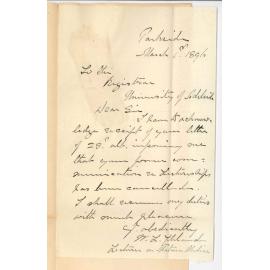 Parkside
March 1st 1896
To the
Registrar
University of Adelaide
Dear Sir
I have to acknow-
ledge receipt of your letter
of 28th ult. informing me
that your former com-
munication re Lectureships
has been cancelled.
I shall resume my duties
with much pleasure
Yr obediently
W. L. Cleland
Lecturer on Materia Medica